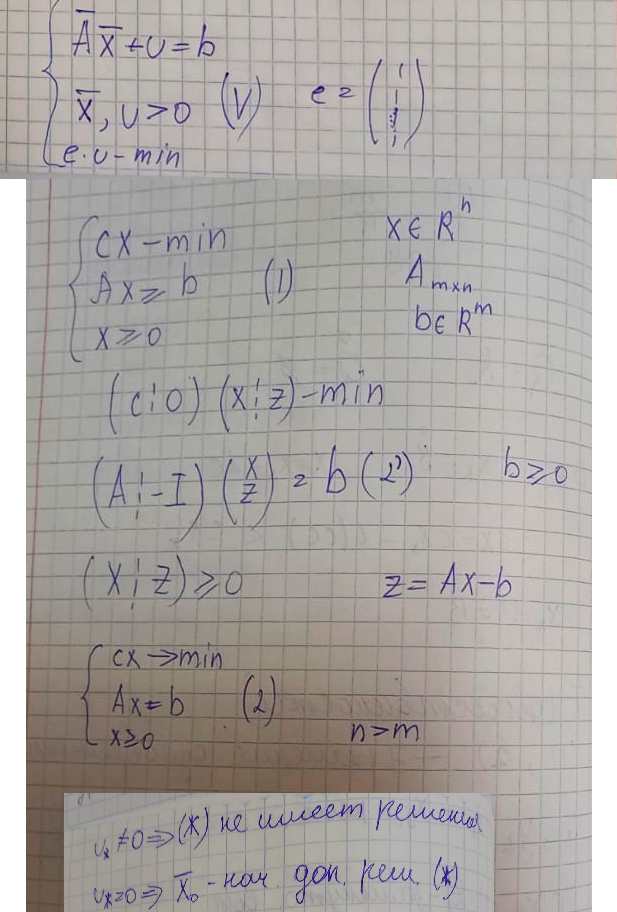 A̅ x̅ + u = b
x̅, u > 0 (V) e = (1 1 ⋮ 1)
e·u - min
cx - min x ∈ R^n
Ax ≥ b (1) A_{m×n}
x ≥ 0 b ∈ R^m
(c ¦ 0) (x ¦ z) - min
(A ¦ -I) (x/z) = b (2') b ≥ 0
(x ¦ z) ≥ 0 z = Ax - b
cx → min
Ax = b (2)
x ≥ 0 n > m
u_* ≠ 0 ⇒ (*) не имеет решения
u_* = 0 ⇒ x̅_0 - нач. доп. реш. (*)